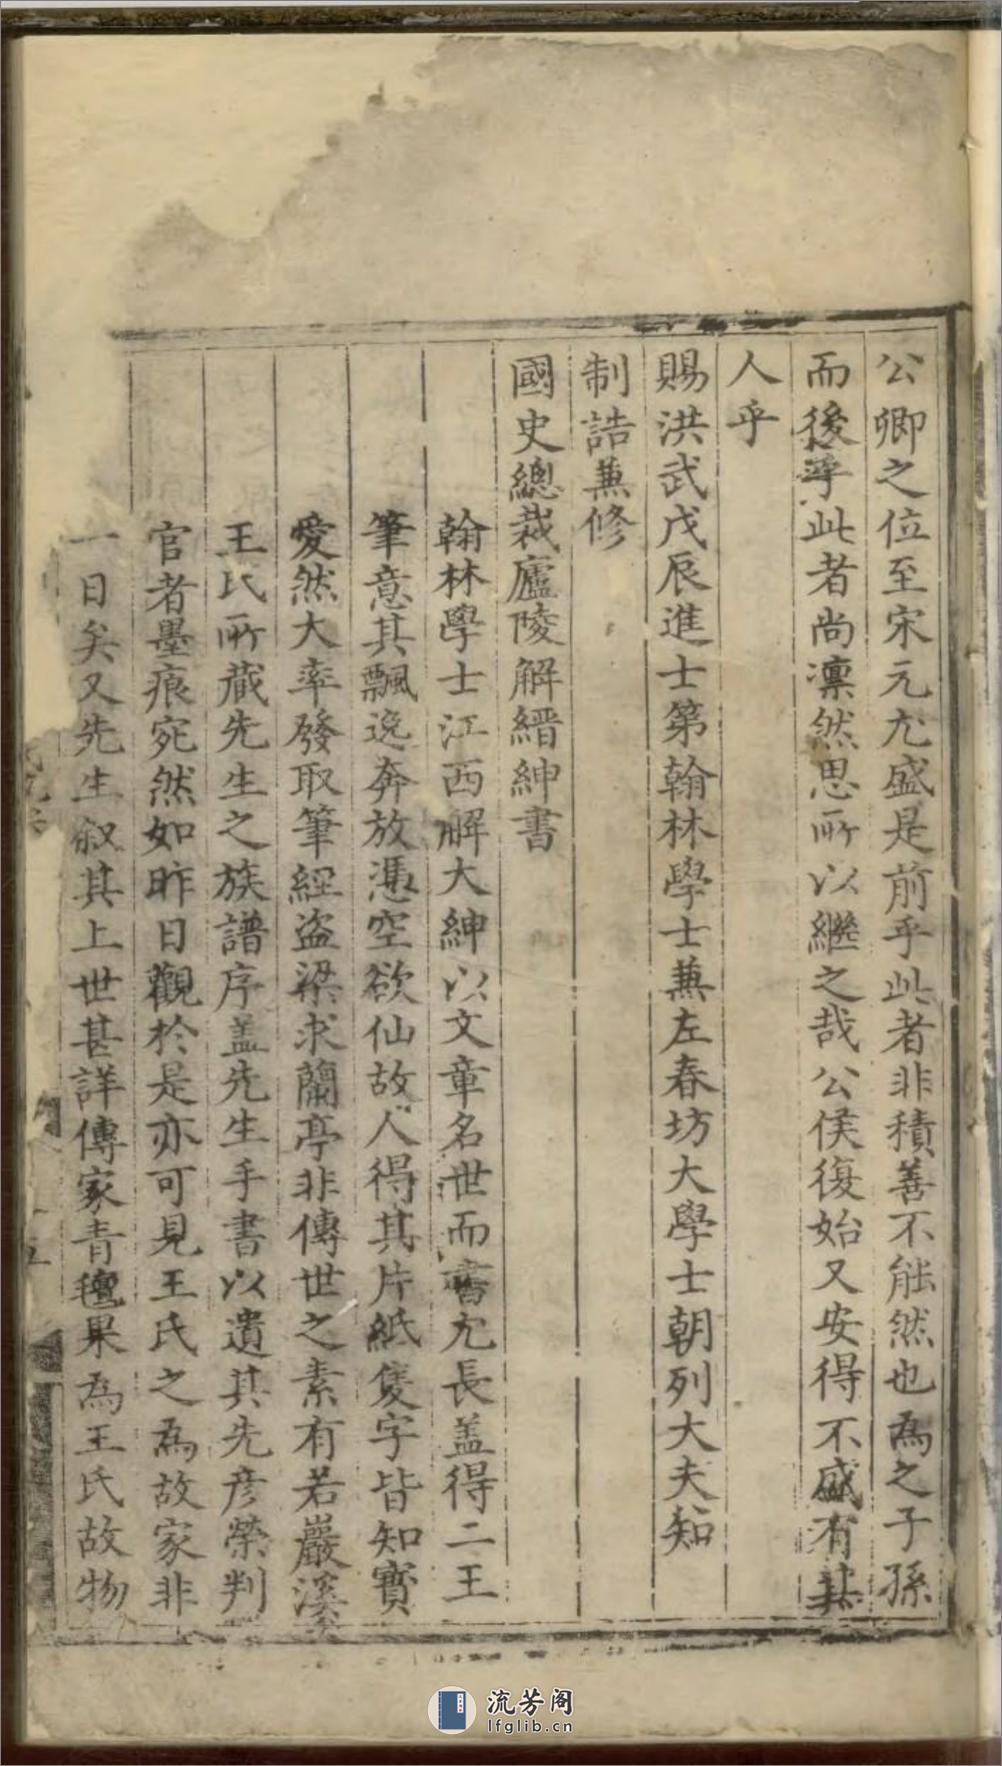 公卿之位至宋元尤盛是前乎此者非積善不能然也為之子孫
而後乎此者尚凜然思所以繼之哉公侯復始又安得不盛有其
人乎
賜洪武戊辰進士第翰林學士兼左春坊大學士朝列大夫知
制誥兼修
國史總裁廬陵解縉紳書
翰林學士江西解大紳以文章名世而書尤長盖得二王
筆意其飄逸奔放憑空欲仙故人得其片紙隻字皆知寶
愛然大率發取筆經盗梁求蘭亭非傳世之素有若巖溪
王氏所藏先生之族譜序盖先生手書以遺其先彦榮判
官者墨痕宛然如昨日觀於是亦可見王氏之為故家非
一日矣又先生叙其上世甚詳傳家青氊果為王氏故物
流芳阁
lfglib.cn